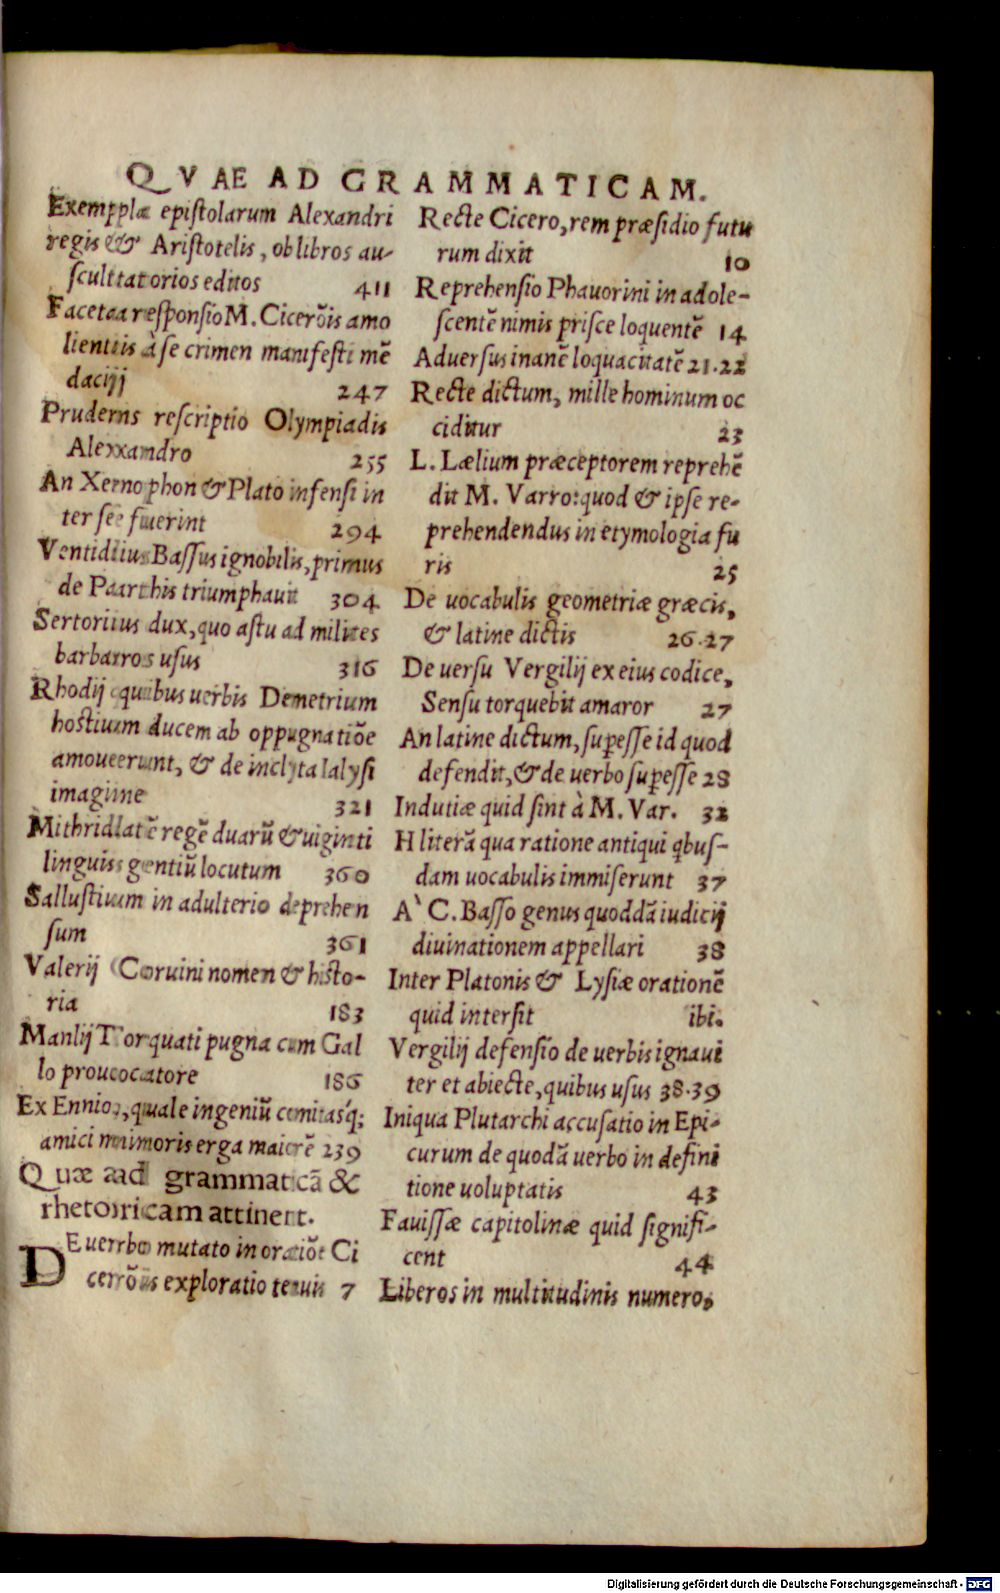 QVAE AD GRAMMATICAM.
Exempla epistolarum Alexandri
regis & Aristotelis, ob libros au-
scultatorios editos 411
Faceta responsio M. Cicerõis amo
lientis à se crimen manifesti mẽ
dacij 247
Prudens rescriptio Olympiadis
Alexandro 255
An Xenophon & Plato infensi in
ter se fuerint 294
Ventidius Bassus ignobilis, primus
de Parthis triumphauit 304
Sertorius dux, quo astu ad milites
barbaros usus 316
Rhodij quibus uerbis Demetrium
hostium ducem ab oppugnatiõe
amouerunt, & de inclyta Ialysi
imagine 321
Mithridatẽ regẽ duarũ & uiginti
linguis gentiũ locutum 360
Sallustium in adulterio deprehen
sum 361
Valerij Coruini nomen & histo-
ria 183
Manlij Torquati pugna cum Gal
lo prouocatore 186
Ex Ennio, quale ingeniũ comitasq́;
amici minoris erga maiorẽ 239
Quæ ad grammaticã &
rhetoricam attinent.
DE uerbo mutato in oratiõe Ci
cerõis exploratio tenuis 7
Recte Cicero, rem præsidio futu
rum dixit 10
Reprehensio Phauorini in adole-
scentẽ nimis prisce loquentẽ 14
Aduersus inanẽ loquacitatẽ 21.22
Recte dictum, mille hominum oc
ciditur 23
L. Lælium præceptorem reprehẽ
dit M. Varro: quod & ipse re-
prehendendus in etymologia fu
ris 25
De uocabulis geometriæ græcis,
& latine dictis 26.27
De uersu Vergilij ex eius codice,
Sensu torquebit amaror 27
An latine dictum, suꝑesse id quod
defendit, & de uerbo suꝑesse 28
Indutiæ quid sint à M. Var. 32
H literã qua ratione antiqui qbus-
dam uocabulis immiserunt 37
A` C. Basso genus quoddã iudicij
diuinationem appellari 38
Inter Platonis & Lysiæ orationẽ
quid intersit ibi.
Vergilij defensio de uerbis ignaui
ter et abiecte, quibus usus 38.39
Iniqua Plutarchi accusatio in Epi-
curum de quodã uerbo in defini
tione uoluptatis 43
Fauissæ capitolinæ quid signifi-
cent 44
Liberos in multitudinis numero,
Digitalisierung gefördert durch die Deutsche Forschungsgemeinschaft - DFG